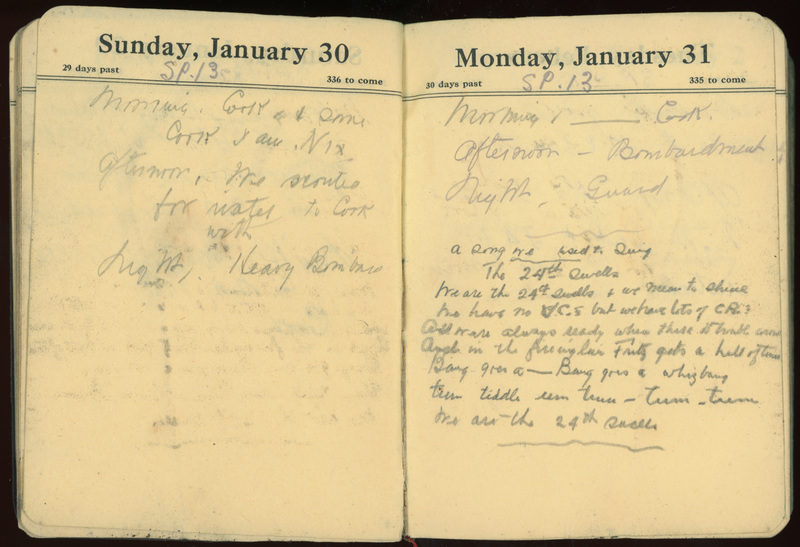 Sunday, January 30
29 days past
SP. 13
336 to come
Morning. Cook & some
Cook I am. Nix
Afternoon, We scouted
for water to Cook
with
Night, Heavy Bombard
Monday, January 31
30 days past
SP. 13
335 to come
Morning, Cook.
Afternoon - Bombardment.
Night, Guard
a song we used to sing
The 24th Swells
We are the 24th swells & we mean to shine
We have no V.C.s but we have lots of C.B.s
And we are always ready when there is
And in the Fritz gets a hell of time
Bang goes a — Bang goes a whizbang
tum tiddle um tum - tum - tum
We are the 24th swells